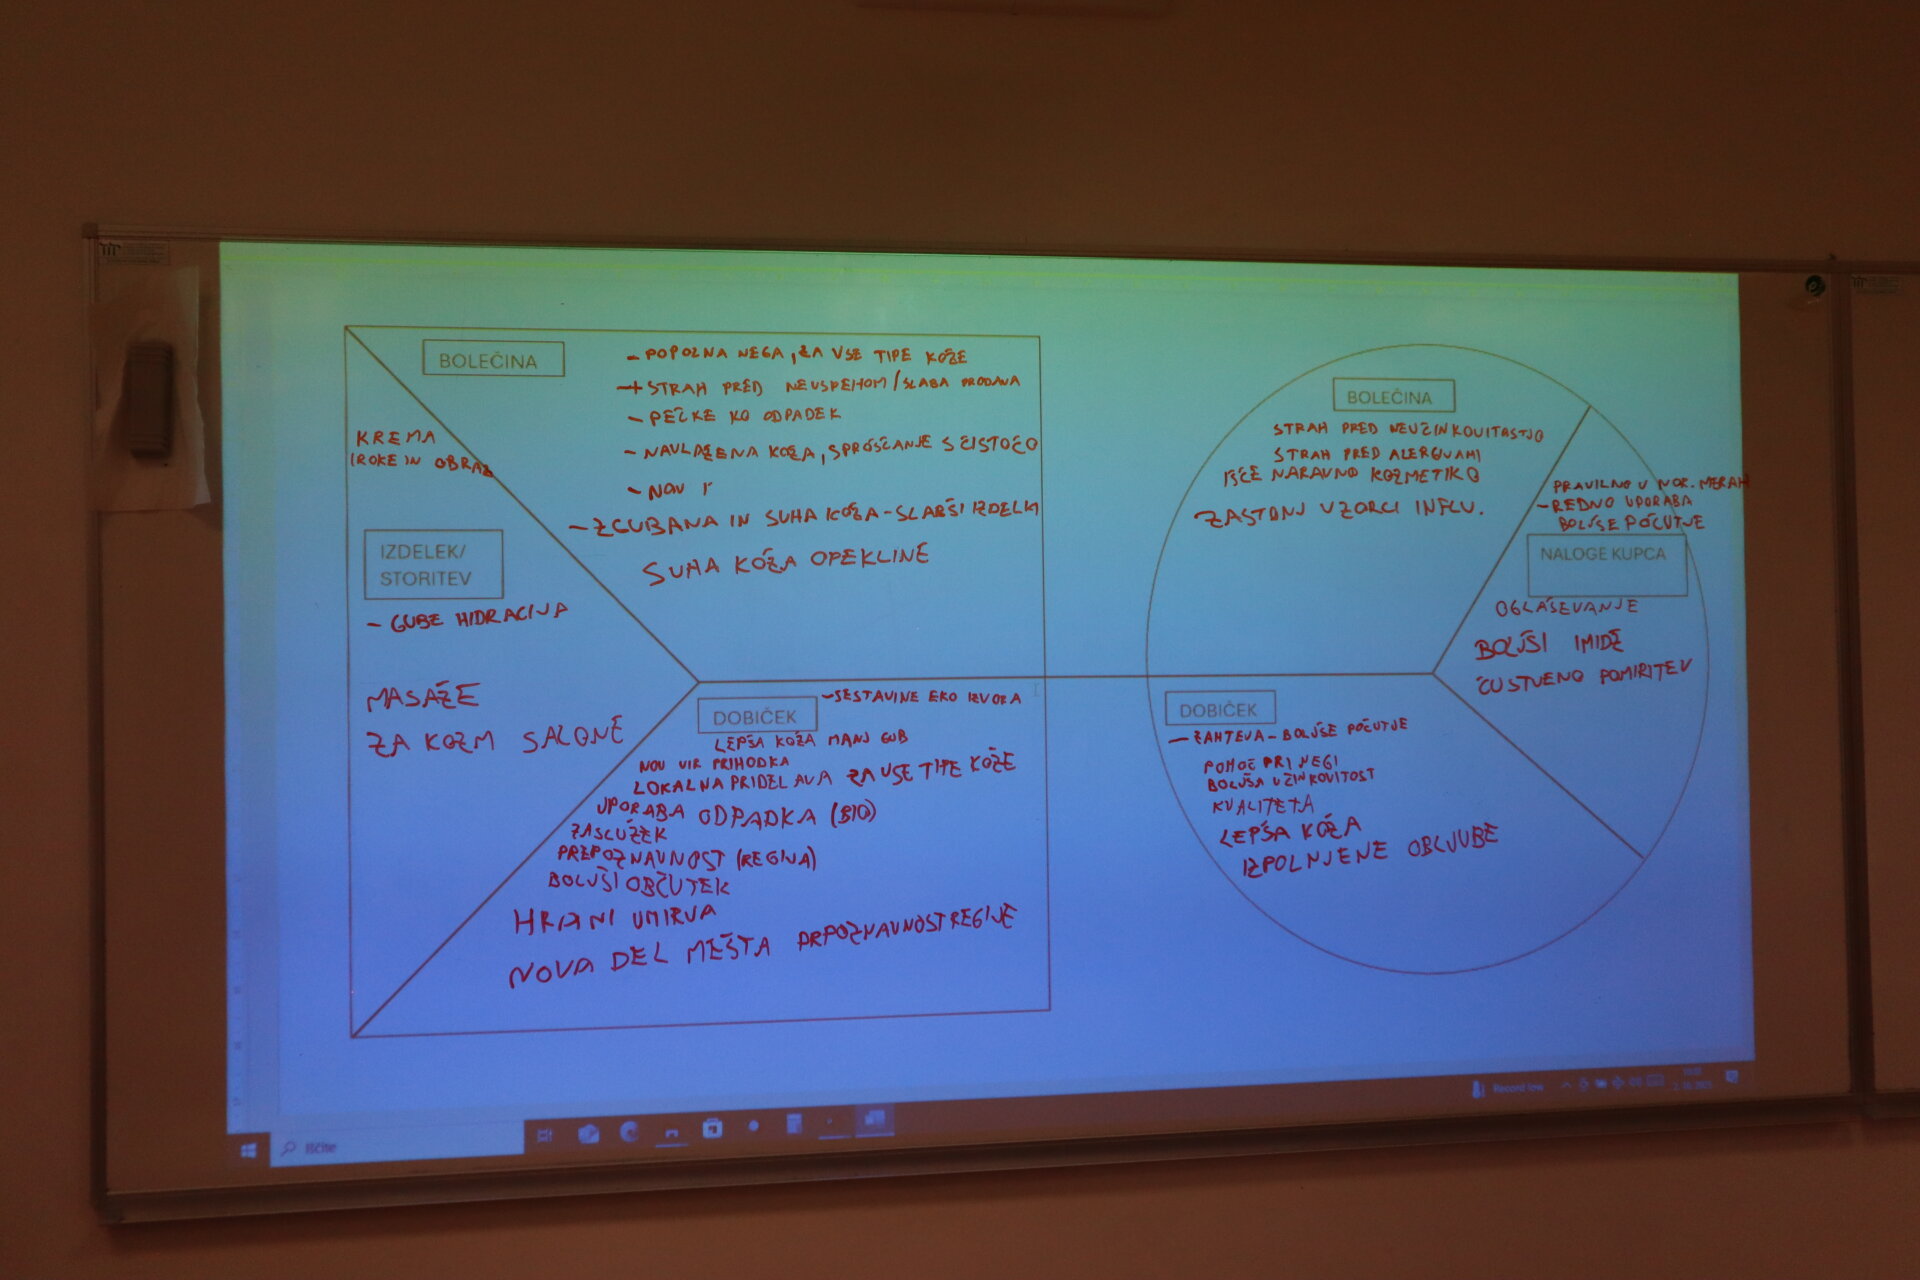 BOLEČINA
- POPOLNA NEGA, ZA VSE TIPE KOŽE
-+ STRAH PRED NEUSPEHOM/SLABA PRODAVA
- PEČKE KO ODPADEK
- NAVLAŽENA KOŽA, SPROŠČANJE S ČISTOČO
- NOV
- ZGUBANA IN SUHA KOŽA - SLABŠI IZDELKI
SUHA KOŽA OPEKLINE
KREMA
(ROKE IN OBRAZ
IZDELEK/
STORITEV
- GUBE HIDRACIJA
MASAŽE
ZA KOZM SALONE
DOBIČEK
- SESTAVINE EKO IZVORA
LEPŠA KOŽA MANJ GUB
NOV VIR PRIHODKA
LOKALNA PRIDELAVA ZA VSE TIPE KOŽE
UPORABA ODPADKA (BIO)
ZASLUŽEK
PREPOZNAVNOST (REGIJA)
BOLJŠI OBČUTEK
HRANI UMIRJA
NOVA DEL MEŠTA PRPOZNAVNOST REGIJE
BOLEČINA
STRAH PRED NEUČINKOVITASTJO
STRAH PRED ALERGIJAMI
IŠČE NARAVNO KOZMETIKO
ZASTONJ VZORCI INFLU.
PRAVILNO V NOR. MERAH
- REDNO UPORABA
BOLJŠE POČUTJE
NALOGE KUPCA
OGLAŠEVANJE
BOLJŠI IMIDŽ
ČUSTVENO POMIRITEV
DOBIČEK
- ZAHTEVA - BOLJŠE POČUTJE
POMOČ PRI NEGI
BOLJŠA UČINKOVITOST
KVALITETA
LEPŠA KOŽA
IZPOLNJENE OBLJUBE
Record low
Iščite